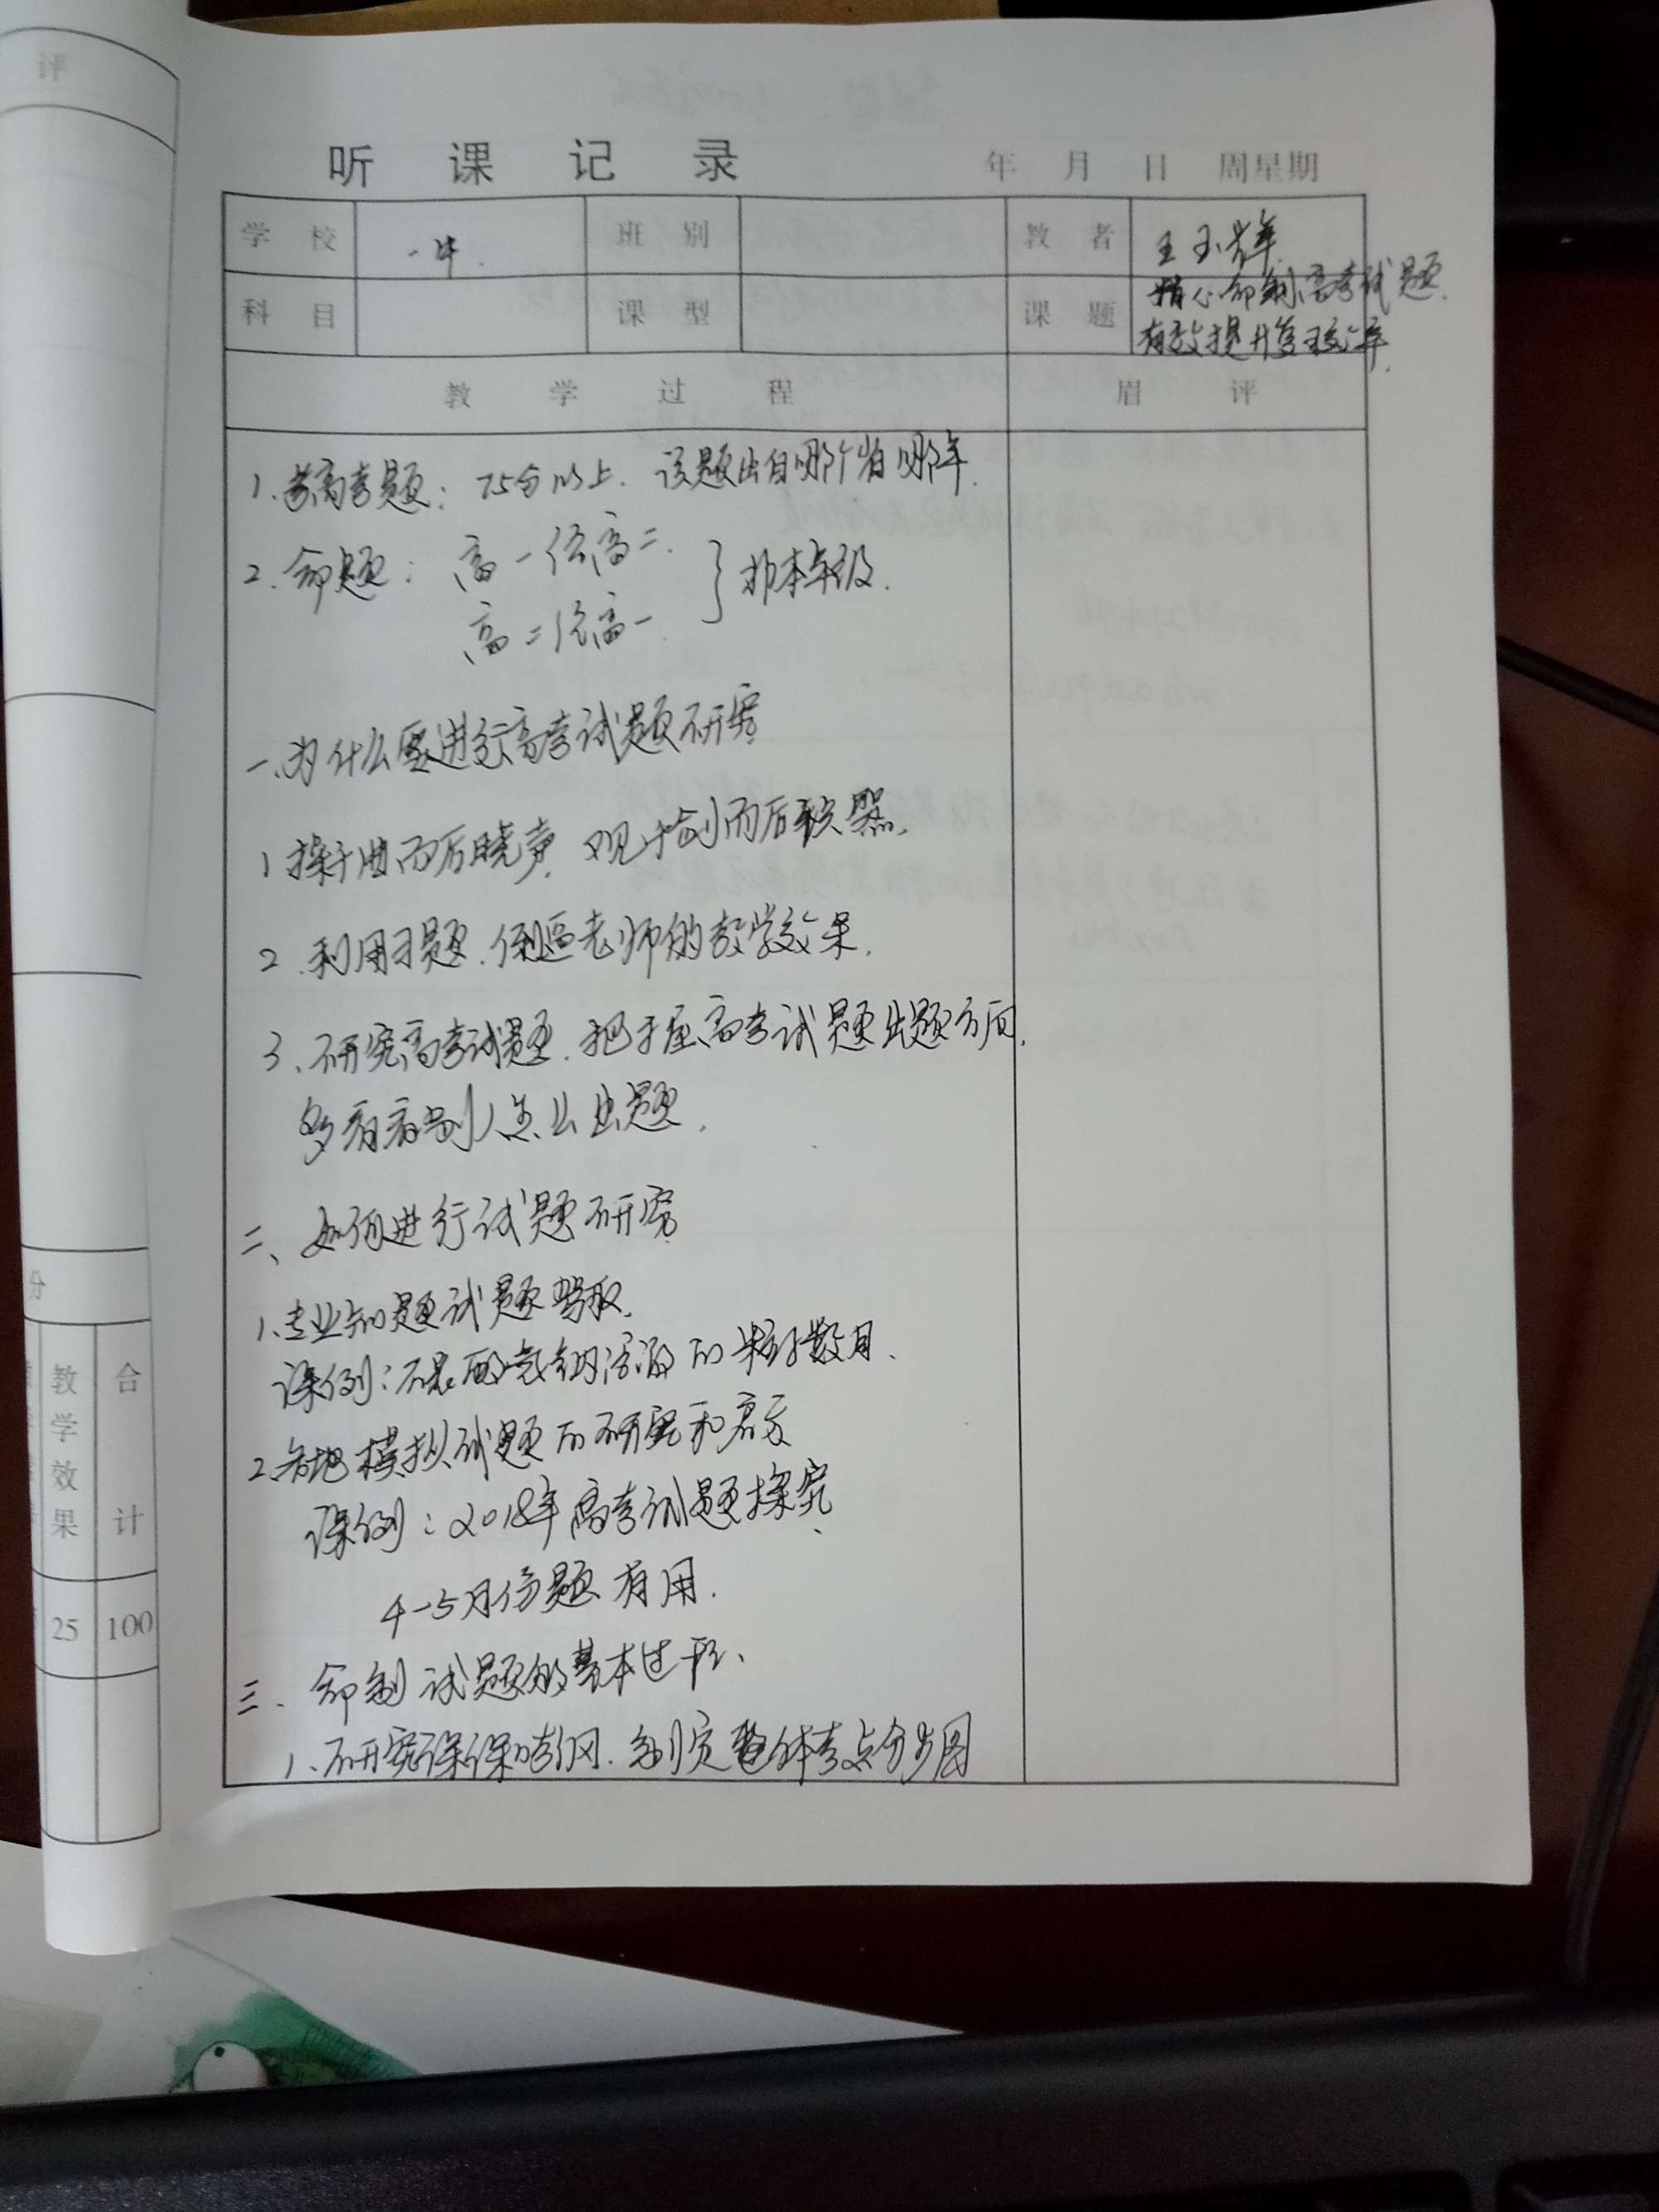 评
听课记录 年 月 日 周星期
学校 一中. 班别 教者 王玉辉
科目 课型 课题 精心命制高考试题.
有效提升复习效率.
教学过程 眉评
1. 高考题: 75分以上. 该题出自哪个省哪年.
2. 命题: 高一给高二.
高二给高一. } 本年级.
一、为什么要进行高考试题研究
1 操千曲而后晓声. 观千剑而后识器.
2. 利用习题. 倒逼老师的教学效果.
3、研究高考试题. 把握高考试题出题方向.
多看看别人怎么出题.
二、如何进行试题研究
1、专业知题试题
课例: 的粒子数目、
2、各地模拟试题的研究和
课例: 2018年高考试题探究、
4-5月份题有用.
三、命制试题的基本过程、
1、研究课 考纲. 制定整体考点分步图
分
教学效果 合计
25 100